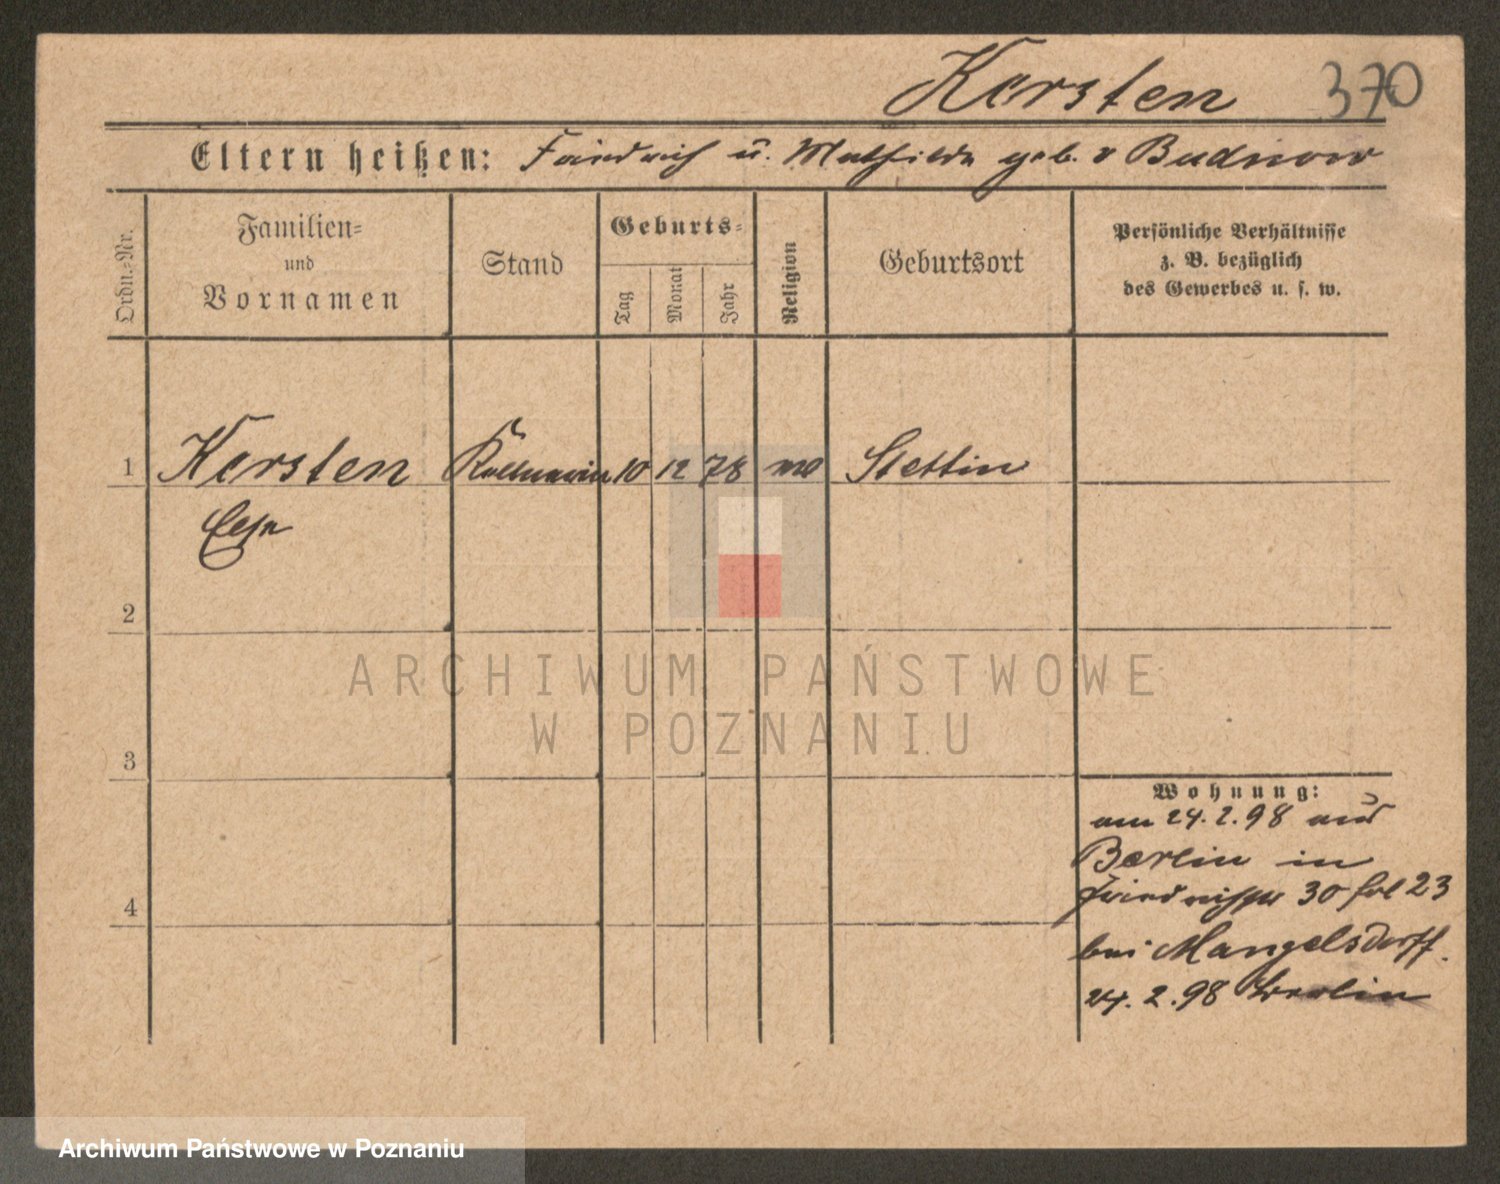 Kersten 370
Eltern heißen: Friedrich u. Mathilde geb. v Budnow
Ordn.-Nr.
Familien-
und
Vornamen
Stand
Geburts-
Tag
Monat
Jahr
Religion
Geburtsort
Persönliche Verhältnisse
z. B. bezüglich
des Gewerbes u. s. w.
1 Kersten Kellnerin 10 12 78 Stettin
Else
2
3
4
Wohnung:
am 24. 2. 98 aus
Berlin in
30 23
bei Mangelsdorff.
24. 2. 98 Berlin
ARCHIWUM PAŃSTWOWE
W POZNANIU
Archiwum Państwowe w Poznaniu